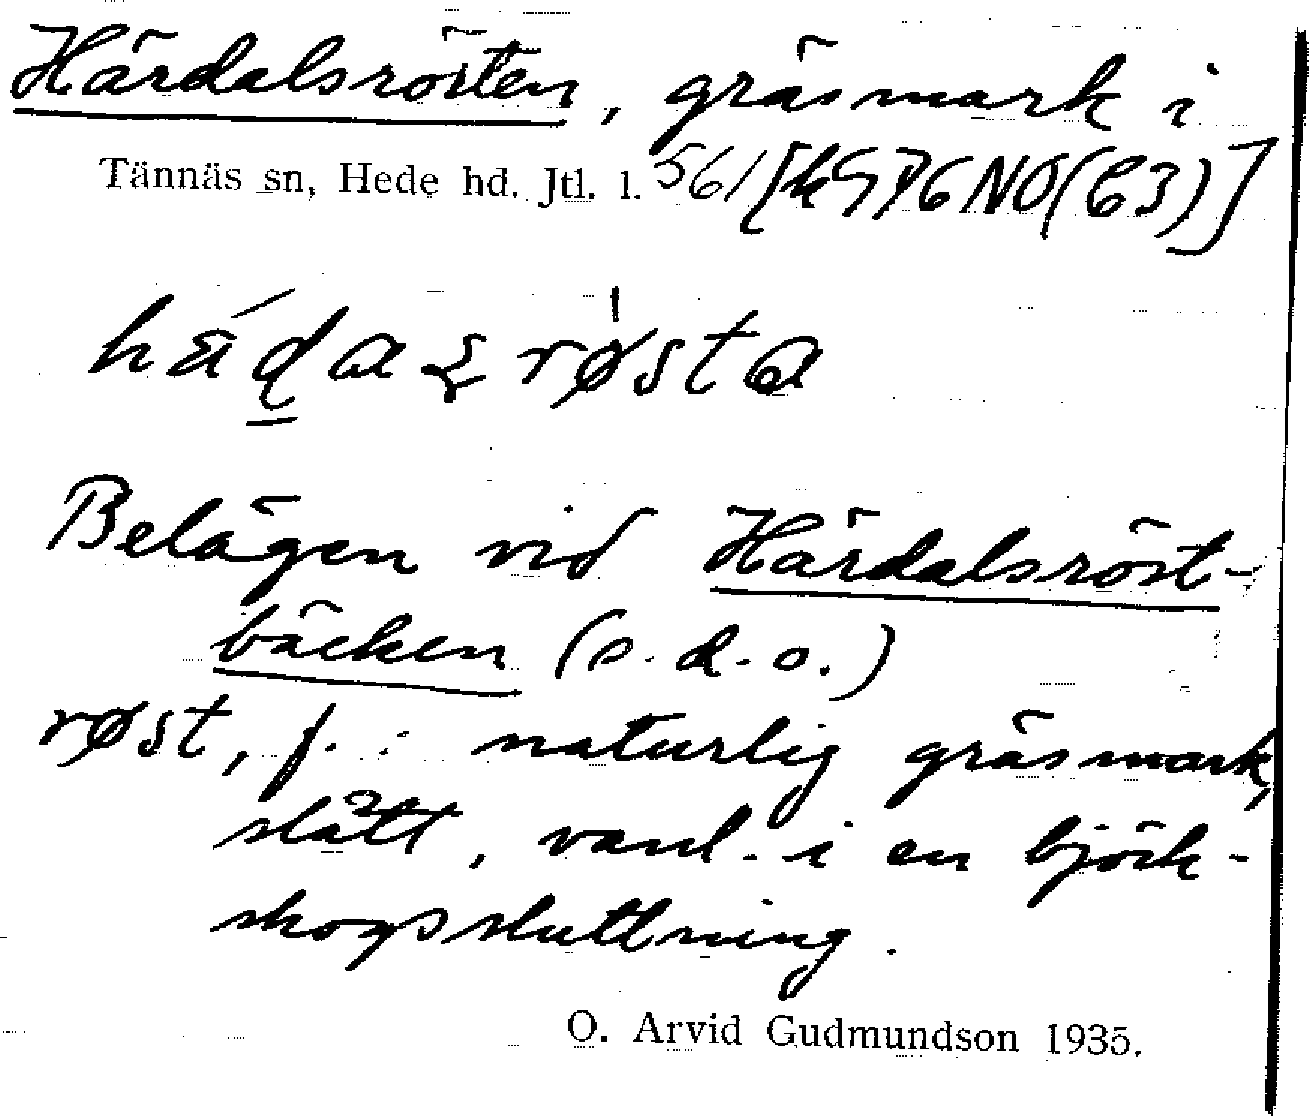 Härdalsrösten, gräsmark i
Tännäs sn, Hede hd. Jtl. l. 561 
Belägen vid Härdalsröst-
bäcken (s.d.o.)
røst, f. : naturlig gräsmark,
slått, vanl. i en björk-
skogssluttning.
O. Arvid Gudmundson 1935.